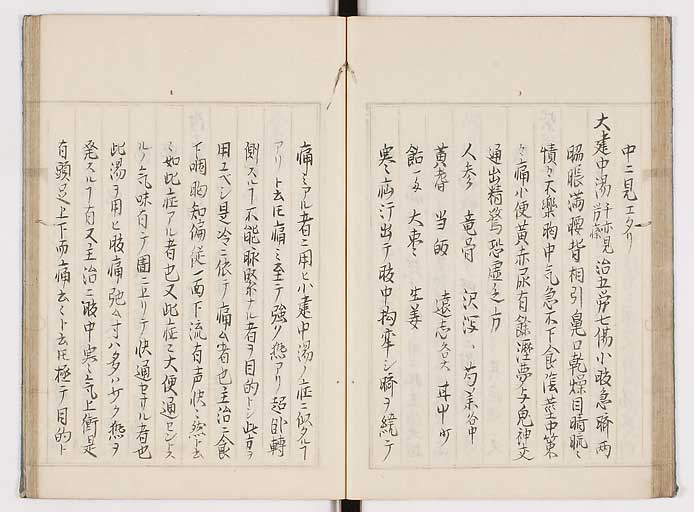 中ニ見エタリ
大建中湯 千亦見労療 治五労七傷小腹急臍両
脇脹満腰背相引鼻口乾燥目暗䀮〻
憒〻不樂胸中気急不下食陰茎中策
〻痛小便黄赤尿有餘瀝夢与鬼神交
通出精驚恐虚乏方
人参 竜骨 沢瀉 、芍薬各中
黄耆 当皈 遠志各大 甘中少
飴一五 大棗ミ 生姜
寒ミ疝ニ汗出テ腹中拘牽シ臍ヲ繞ッテ
痛ミアル者ニ用ヒ小建中湯ノ症ニ似タルヿ
アリト云𪜈痛ミ至テ強ク熱アリ起臥轉
側スルヿ不能脉緊ナル者ヲ目的トシ此方ヲ
用ユベシ是冷ニ依テ痛ム者也主治ニ食
下咽胸知偏従一面下流有声快ミ然ト云
ミ如此症アル者也又此症ミ大便通セントス
ルノ気味有テ圊ニ上リテ快通セサル者也
此湯ヲ用ヒ腹痛弛ム寸ハ多ハ少ク熱ヲ
発スルヿ有又主治ニ腹中寒ミ気上衝是
有頭足上下而痛云ミト云𪜈極テ目的ト